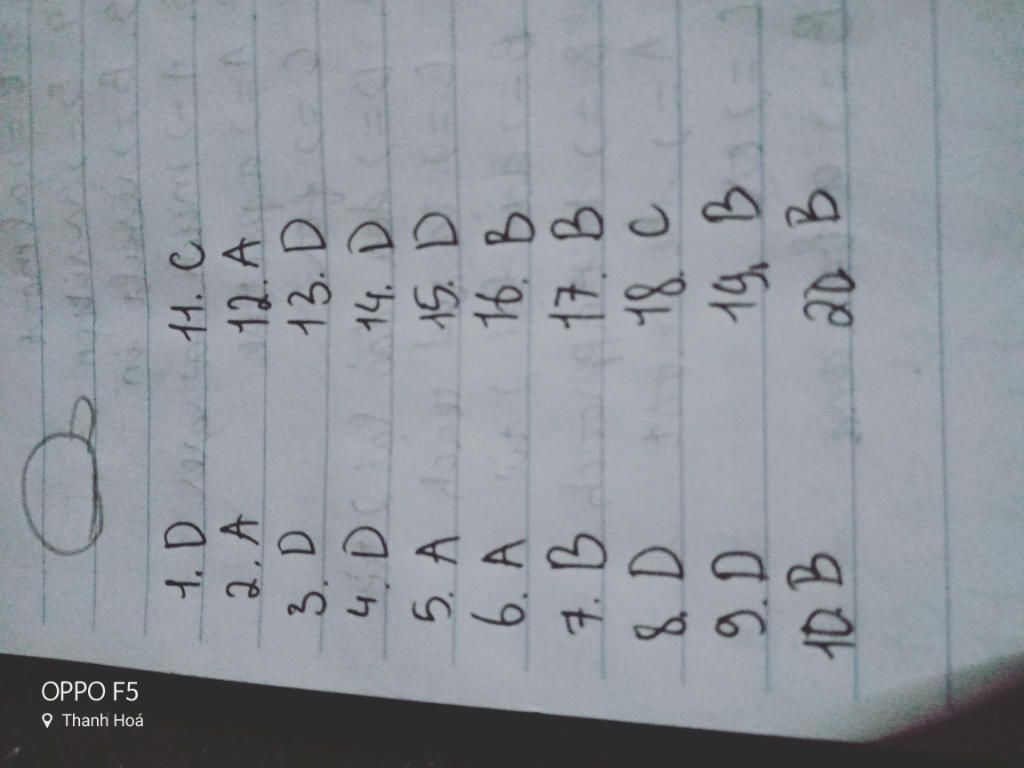 1. D 11. C
2. A 12. A
3. D 13. D
4. D 14. D
5. A 15. D
6. A 16. B
7. B 17. B
8. D 18. C
9. D 19. B
10 B 20 B
OPPO F5
Thanh Hoá